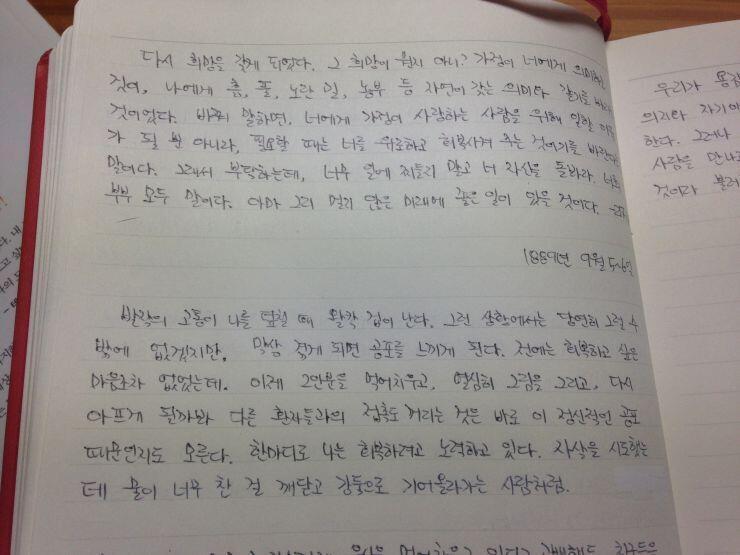 다시 희망을 갖게 되었다. 그 희망이 뭔지 아니? 가정이 너에게 의미하는
것이, 나에게 흙, 풀, 노란 밀, 농부 등 자연이 갖는 의미와 같기를 바라는
것이었다. 바꿔 말하면, 너에게 가정이 사랑하는 사람을 위해 일할 이유
가 될 뿐 아니라, 필요할 때는 너를 위로하고 회복시켜 주는 것이기를 바란다는
말이다. 그래서 부탁하는데, 너무 일에 찌들리 말고 너 자신을 돌봐라. 너희
부부 모두 말이다. 아마 그리 멀지 않은 미래에 좋은 일이 있을 것이다.
1889년 9월 5,6일
발작의 고통이 나를 덮칠 때 왈칵 겁이 난다. 그런 상황에서는 당연히 그럴 수
밖에 없겠지만, 막상 겪게 되면 공포를 느끼게 된다. 전에는 회복하고 싶은
마음조차 없었는데. 이제 2인분을 먹어치우고, 열심히 그림을 그리고, 다시
아프게 될까봐 다른 환자들과의 접촉도 꺼리는 것은 바로 이 정신적인 공포
때문인지도 모른다. 한마디로 나는 회복하려고 노력하고 있다. 자살을 시도했는
데 물이 너무 찬 걸 깨닫고 강둑으로 기어올라가는 사람처럼.
우리가
의지와 자기
한다. 그러나
사람을 만나
것이라